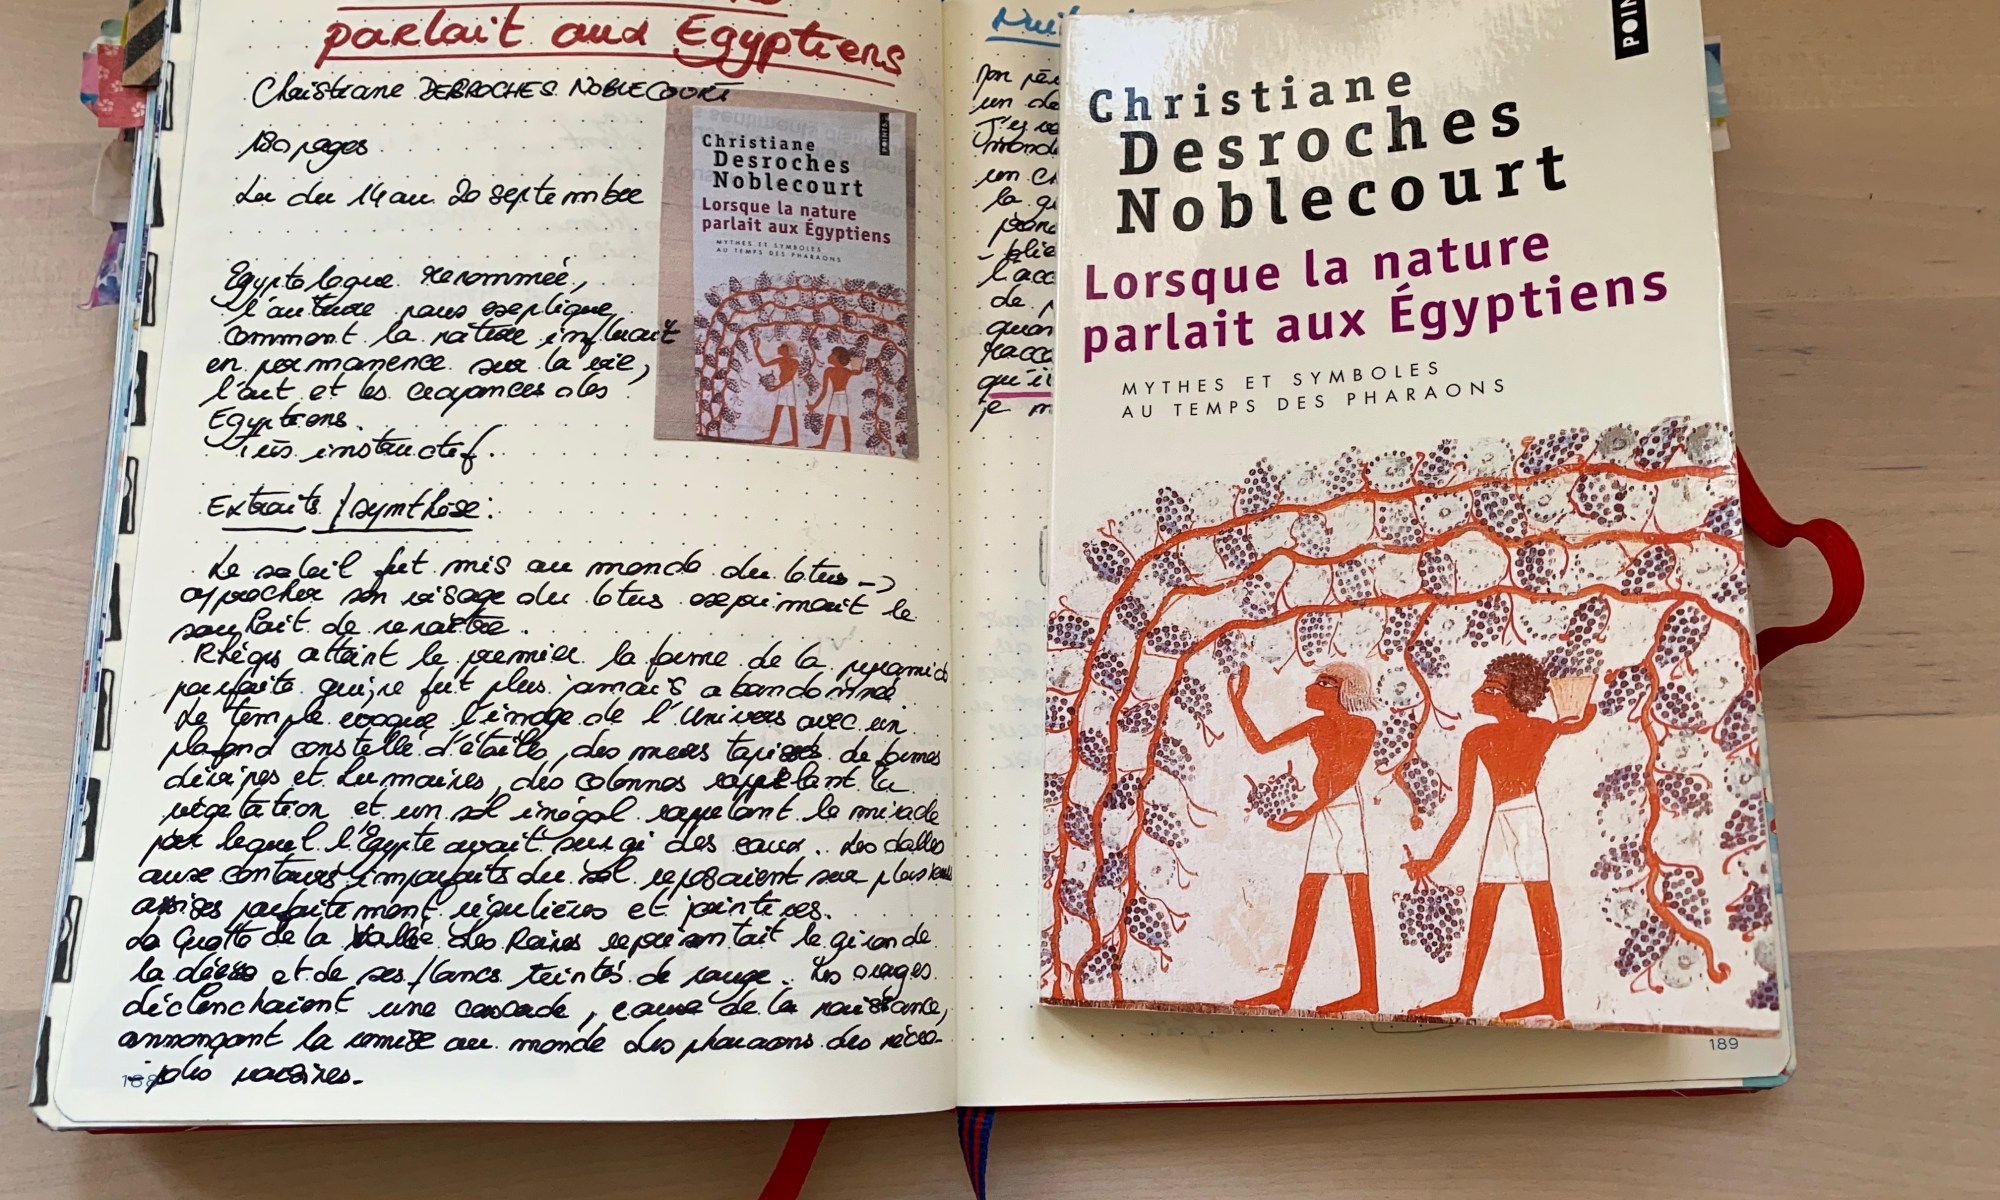 parlait aux Egyptiens
Christiane DESROCHES NOBLECOURT
180 pages
Lu du 14 au 20 septembre
Christiane
Desroches
Noblecourt
Lorsque la nature
parlait aux Égyptiens
MYTHES ET SYMBOLES
AU TEMPS DES PHARAONS
POINTS
Egyptologue renommée,
l'auteure nous explique
comment la nature influait
en permanence sur la vie,
l'art et les croyances des
Egyptiens.
Très instructif.
Extraits / synthèse :
Le soleil fut mis au monde du lotus ->
approcher son visage du lotus exprimait le
souhait de renaître.
Khéops atteint le premier la forme de la pyramide
parfaite qui, ne fut plus jamais abandonnée
Le temple évoque l'image de l'Univers avec un
plafond constellé d'étoiles, des murs tapissés de formes
divines et humaines, des colonnes rappelant la
végétation et un sol inégal rappelant le miracle
par lequel l'Egypte avait surgi des eaux. Les dalles
aux contours imparfaits du sol reposaient sur plusieurs
assises parfaitement régulières et jointives.
La Grotte de la Vallée des Reines représentait le giron de
la déesse et de ses flancs teintés de rouge. Les orages
déclenchaient une cascade, cause de la naissance,
annonçant la remise au monde des pharaons des nécro-
-poles voisines.
188
un de
monde
la
l'acc
de
quan
qu'i
je m
POIN
Christiane
Desroches
Noblecourt
Lorsque la nature
parlait aux Égyptiens
MYTHES ET SYMBOLES
AU TEMPS DES PHARAONS
189